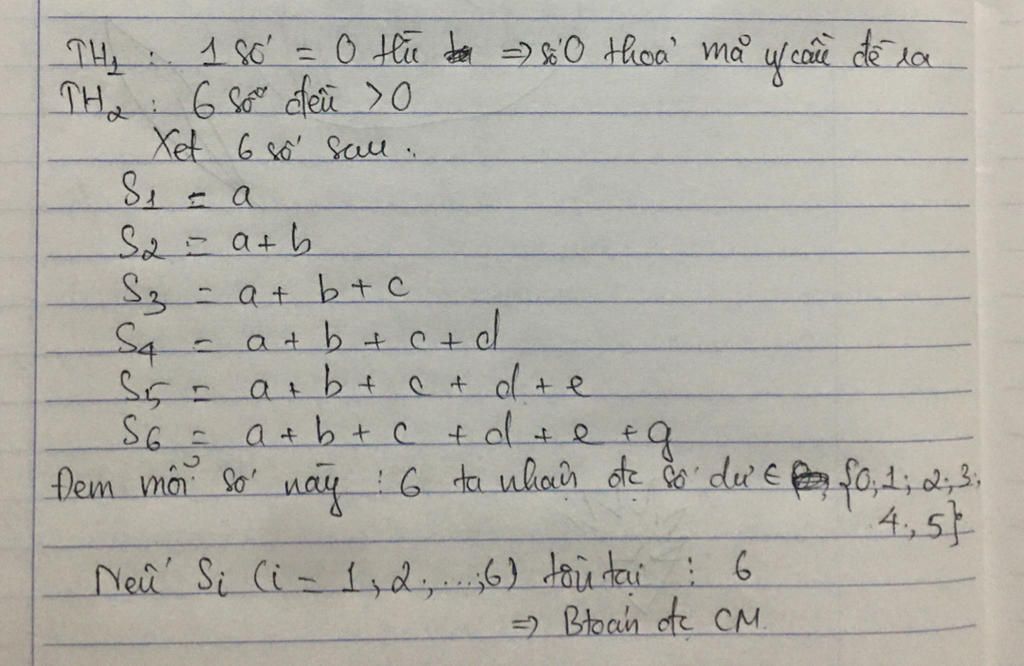 TH1 : 1 số = 0 thì => số 0 thoả mã y/cầu đề ra
TH2 : 6 số đều > 0
Xét 6 số sau.
S1 = a
S2 = a + b
S3 = a + b + c
S4 = a + b + c + d
S5 = a + b + c + d + e
S6 = a + b + c + d + e + g
Đem mỗi số này : 6 ta nhận đc số dư ∈ {0; 1; 2; 3;
4; 5}
Nếu Si (i = 1; 2; ...; 6) tồn tại ⋮ 6
=> Btoán đc CM.